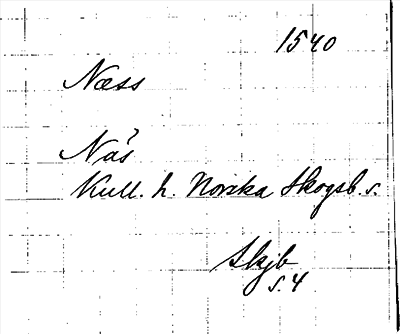 1540
Næss
Näs
Kull. h. Norska Skogsb. s.
Skjb
s. 4